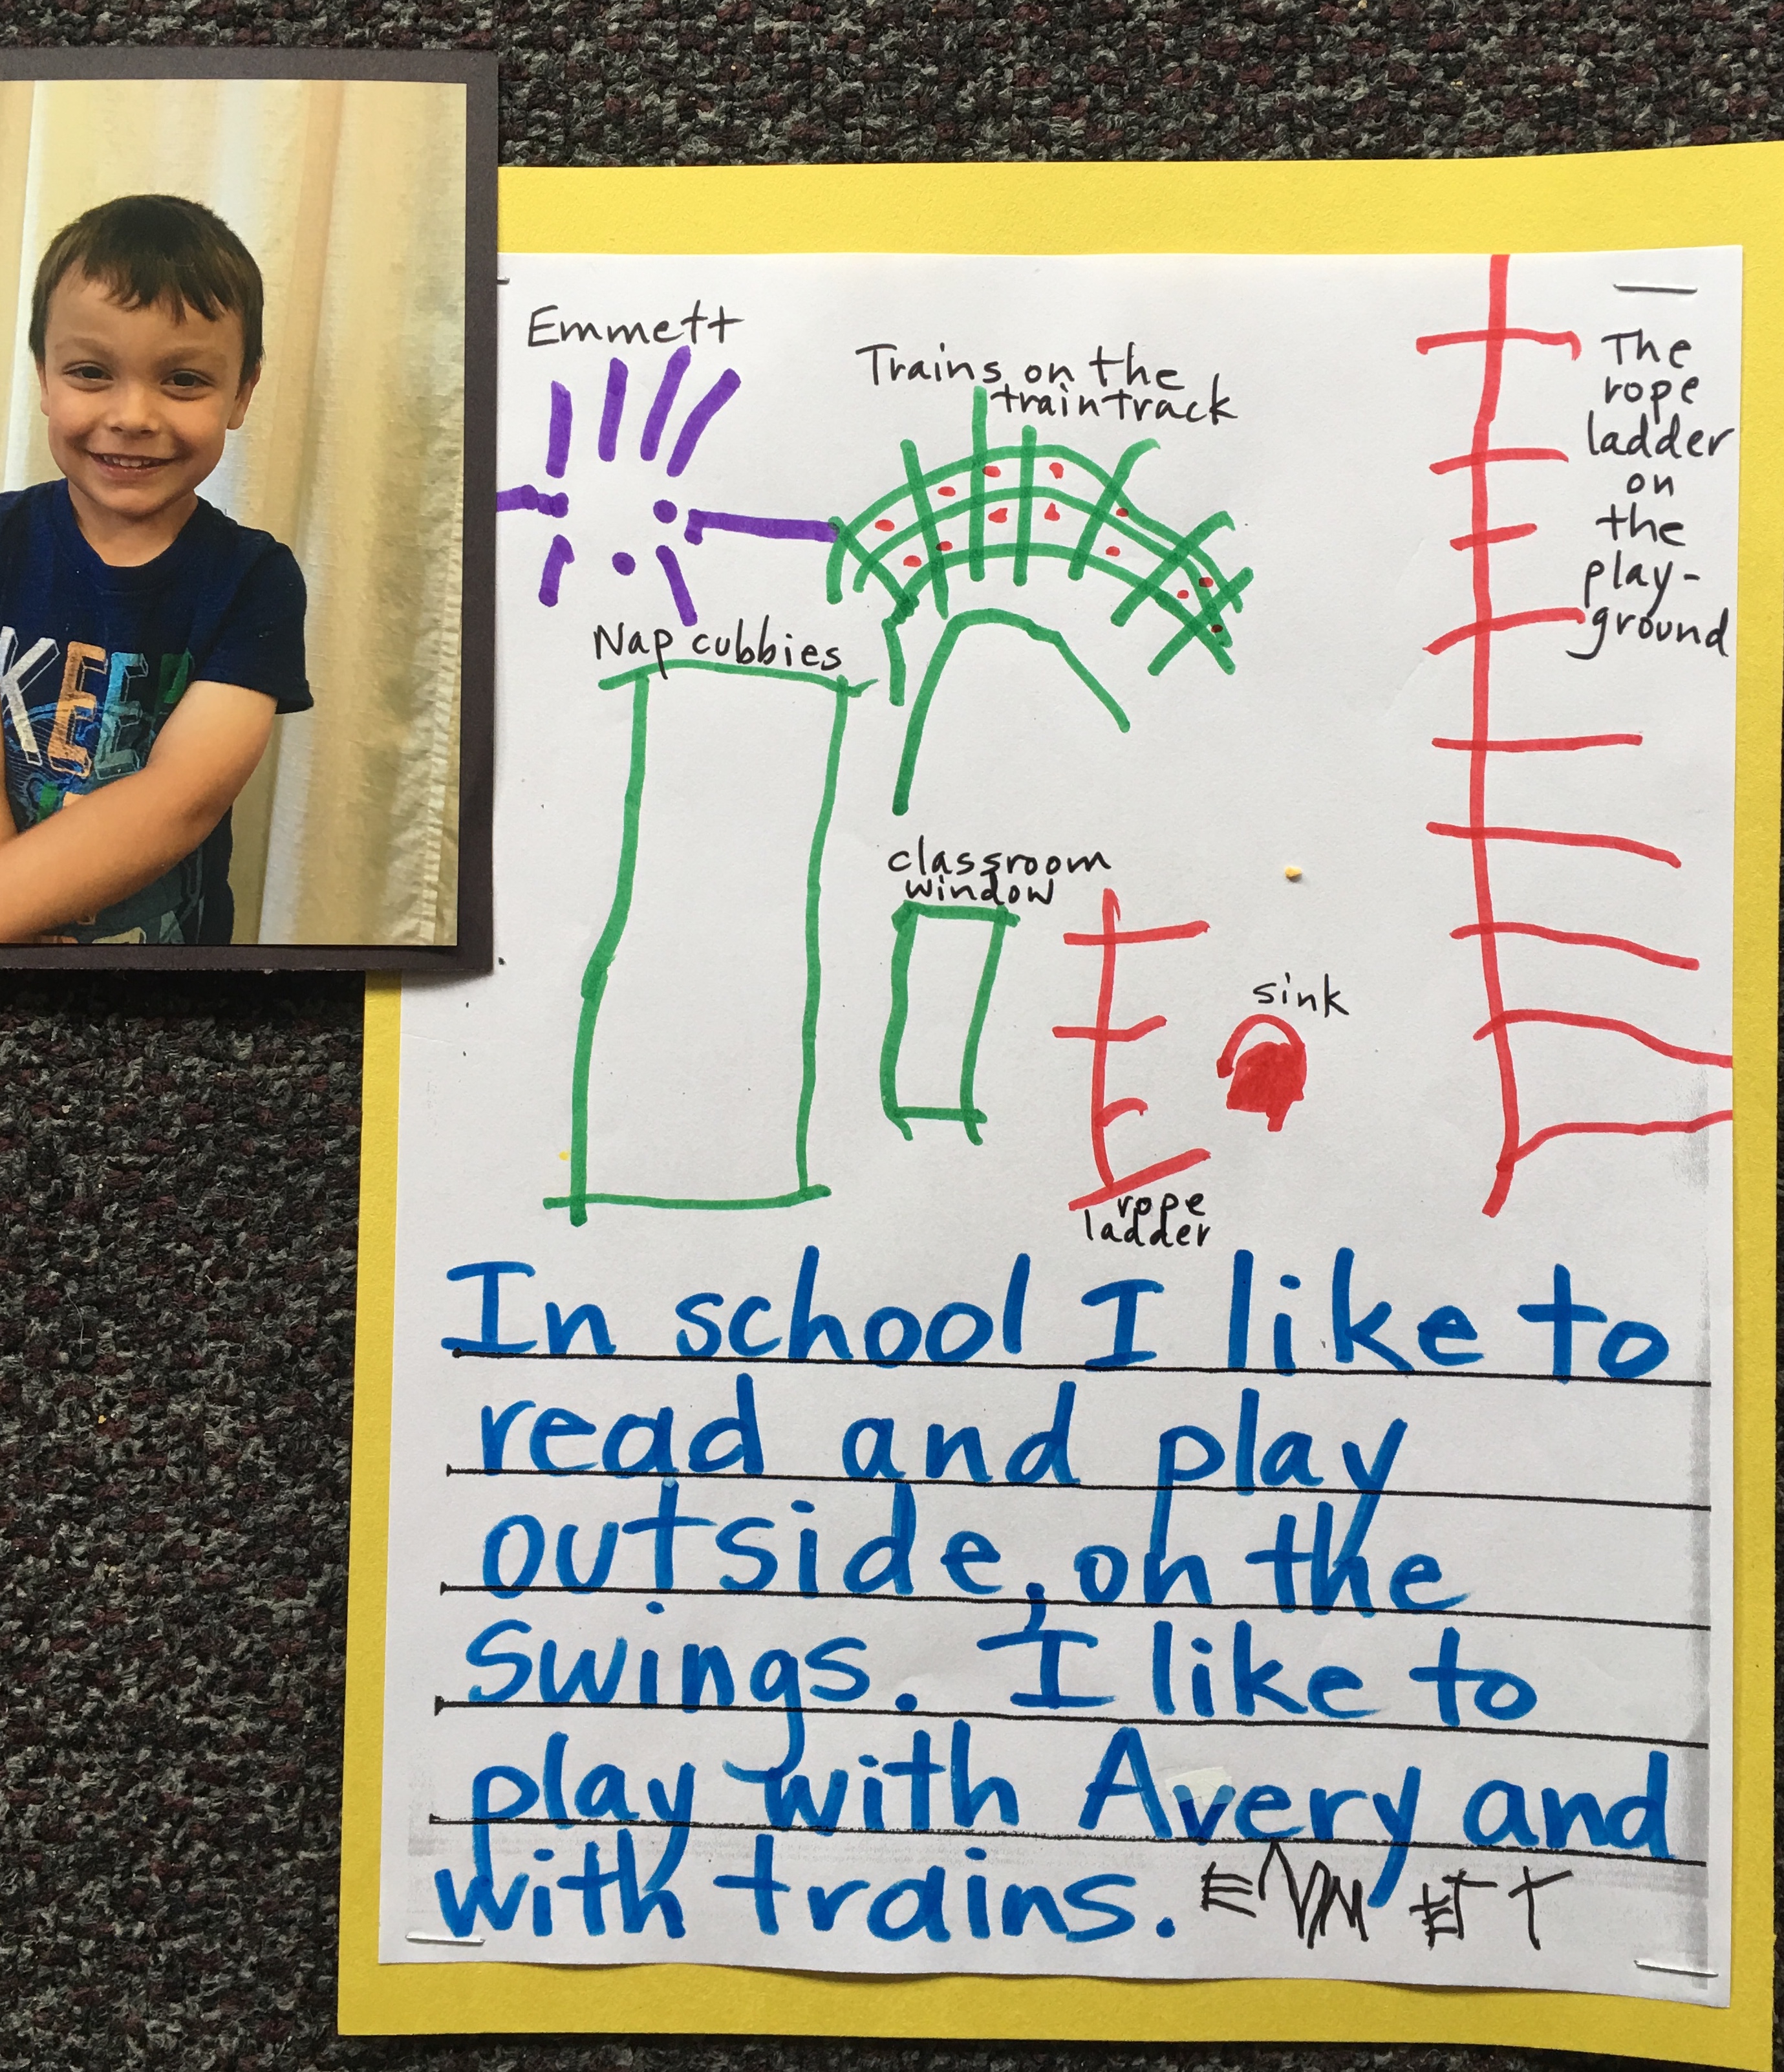 KEEP
Emmett
Trains on the
traintrack
The
rope
ladder
on
the
play-
ground
Nap cubbies
classroom
window
sink
rope
ladder
In school I like to
read and play
outside, on the
swings. I like to
play with Avery and
with trains. EMMETT